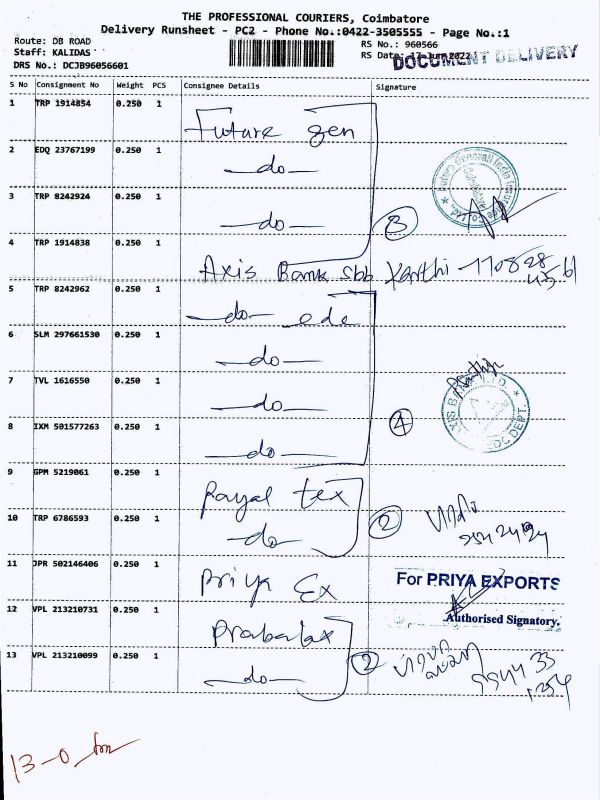 THE PROFESSIONAL COURIERS, Coimbatore
Delivery Runsheet - PC2 - Phone No.:0422-3505555 - Page No.:1
Route: DB ROAD
RS No.: 960566
Staff: KALIDAS
RS Date: 17 Jun 2022
DOCUMENT DELIVERY
DRS No.: DCJB96056601
S No Consignment No Weight PCS Consignee Details Signature
1 TRP 1914854 0.250 1 Future gen
2 EDQ 23767199 0.250 1 -do-
3 TRP 8242924 0.250 1 -do- 3
4 TRP 1914838 0.250 1 Axis Bank sbb Karthi
5 TRP 8242962 0.250 1 -do- edc
6 SLM 297661530 0.250 1 -do-
7 TVL 1616550 0.250 1 -do-
8 IXM 501577263 0.250 1 -do- 4
9 GPM 5219061 0.250 1 Rayal tex
10 TRP 6786593 0.250 1 -do- 2
11 JPR 502146406 0.250 1 Priya Ex For PRIYA EXPORTS
Authorised Signatory.
12 VPL 213210731 0.250 1
13 VPL 213210099 0.250 1 -do- 2
13-0